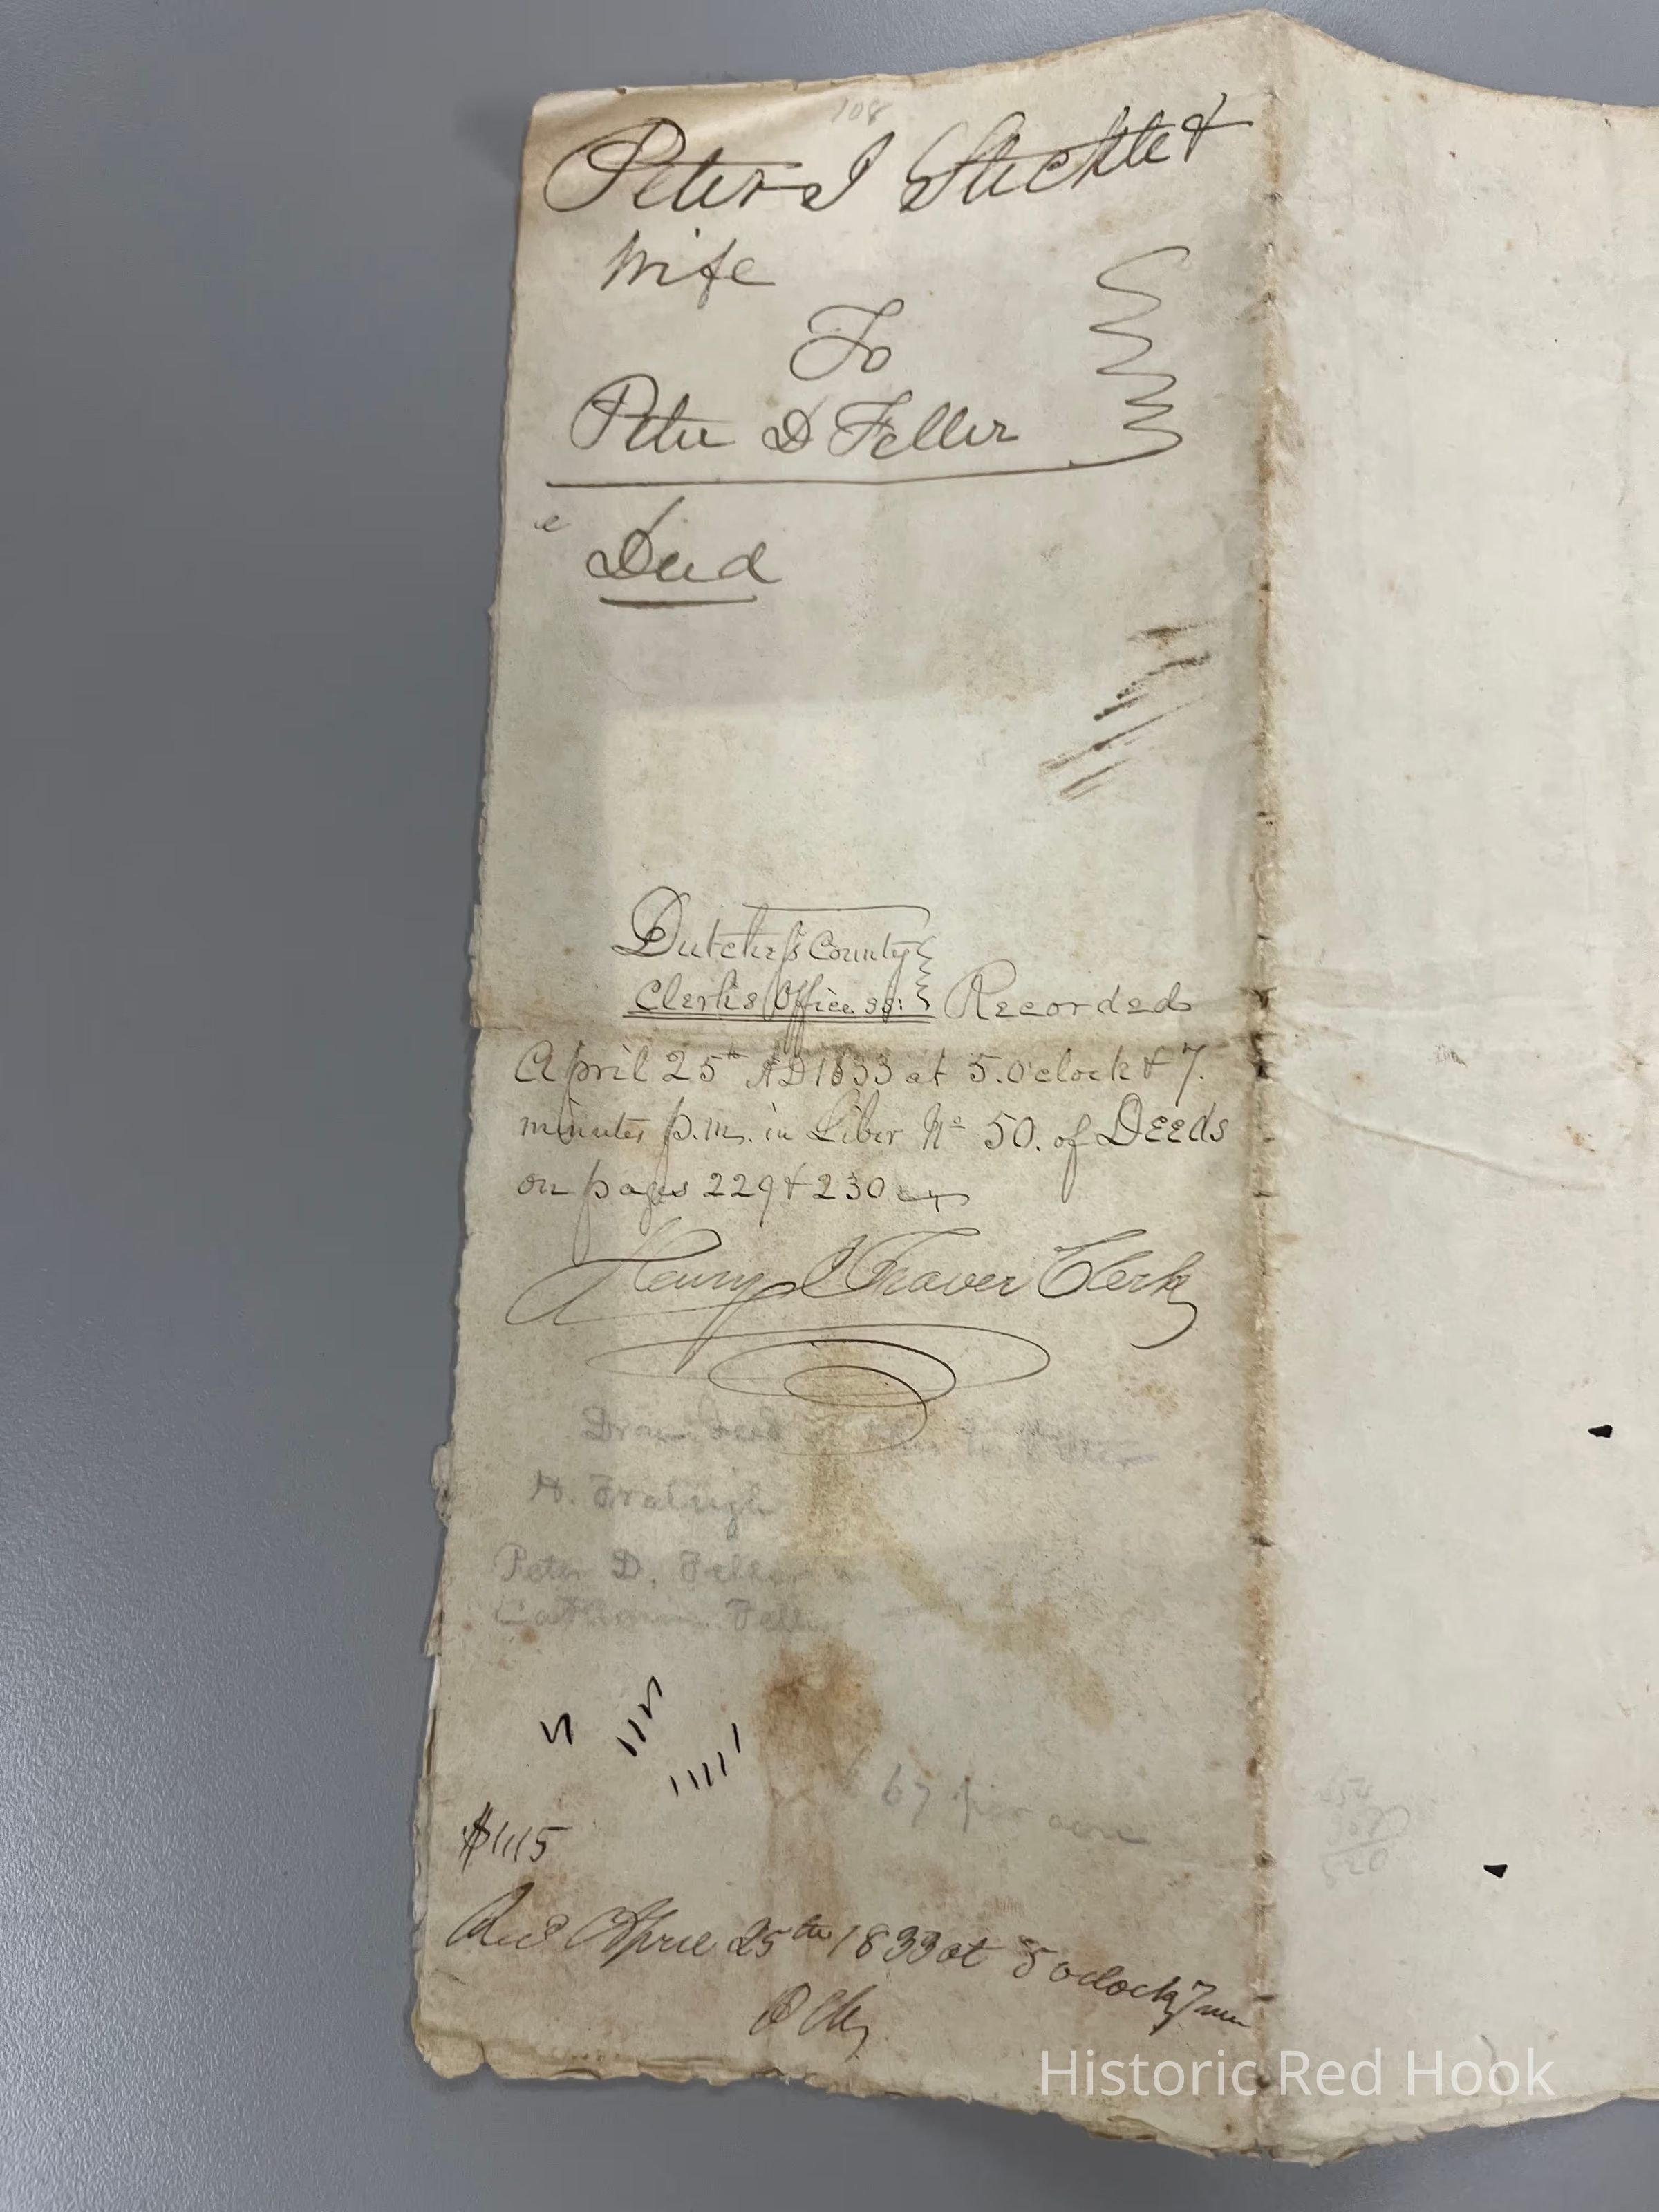 108
Peter I Stickle &
Wife
To
Peter D Feller
Deed
Dutchess County
Clerk's Office ss: Recorded
April 25th AD 1833 at 5. O'clock & 7.
minutes p.m. in Liber No 50. of Deeds
on pages 229 & 230
Henry I Traver Clerk
Draw Deed
H. Fraleigh
Peter D. Feller
Feller
67 per acre
$1,115
Recd April 25th 1833 at 5 oclock 7 min
Historic Red Hook